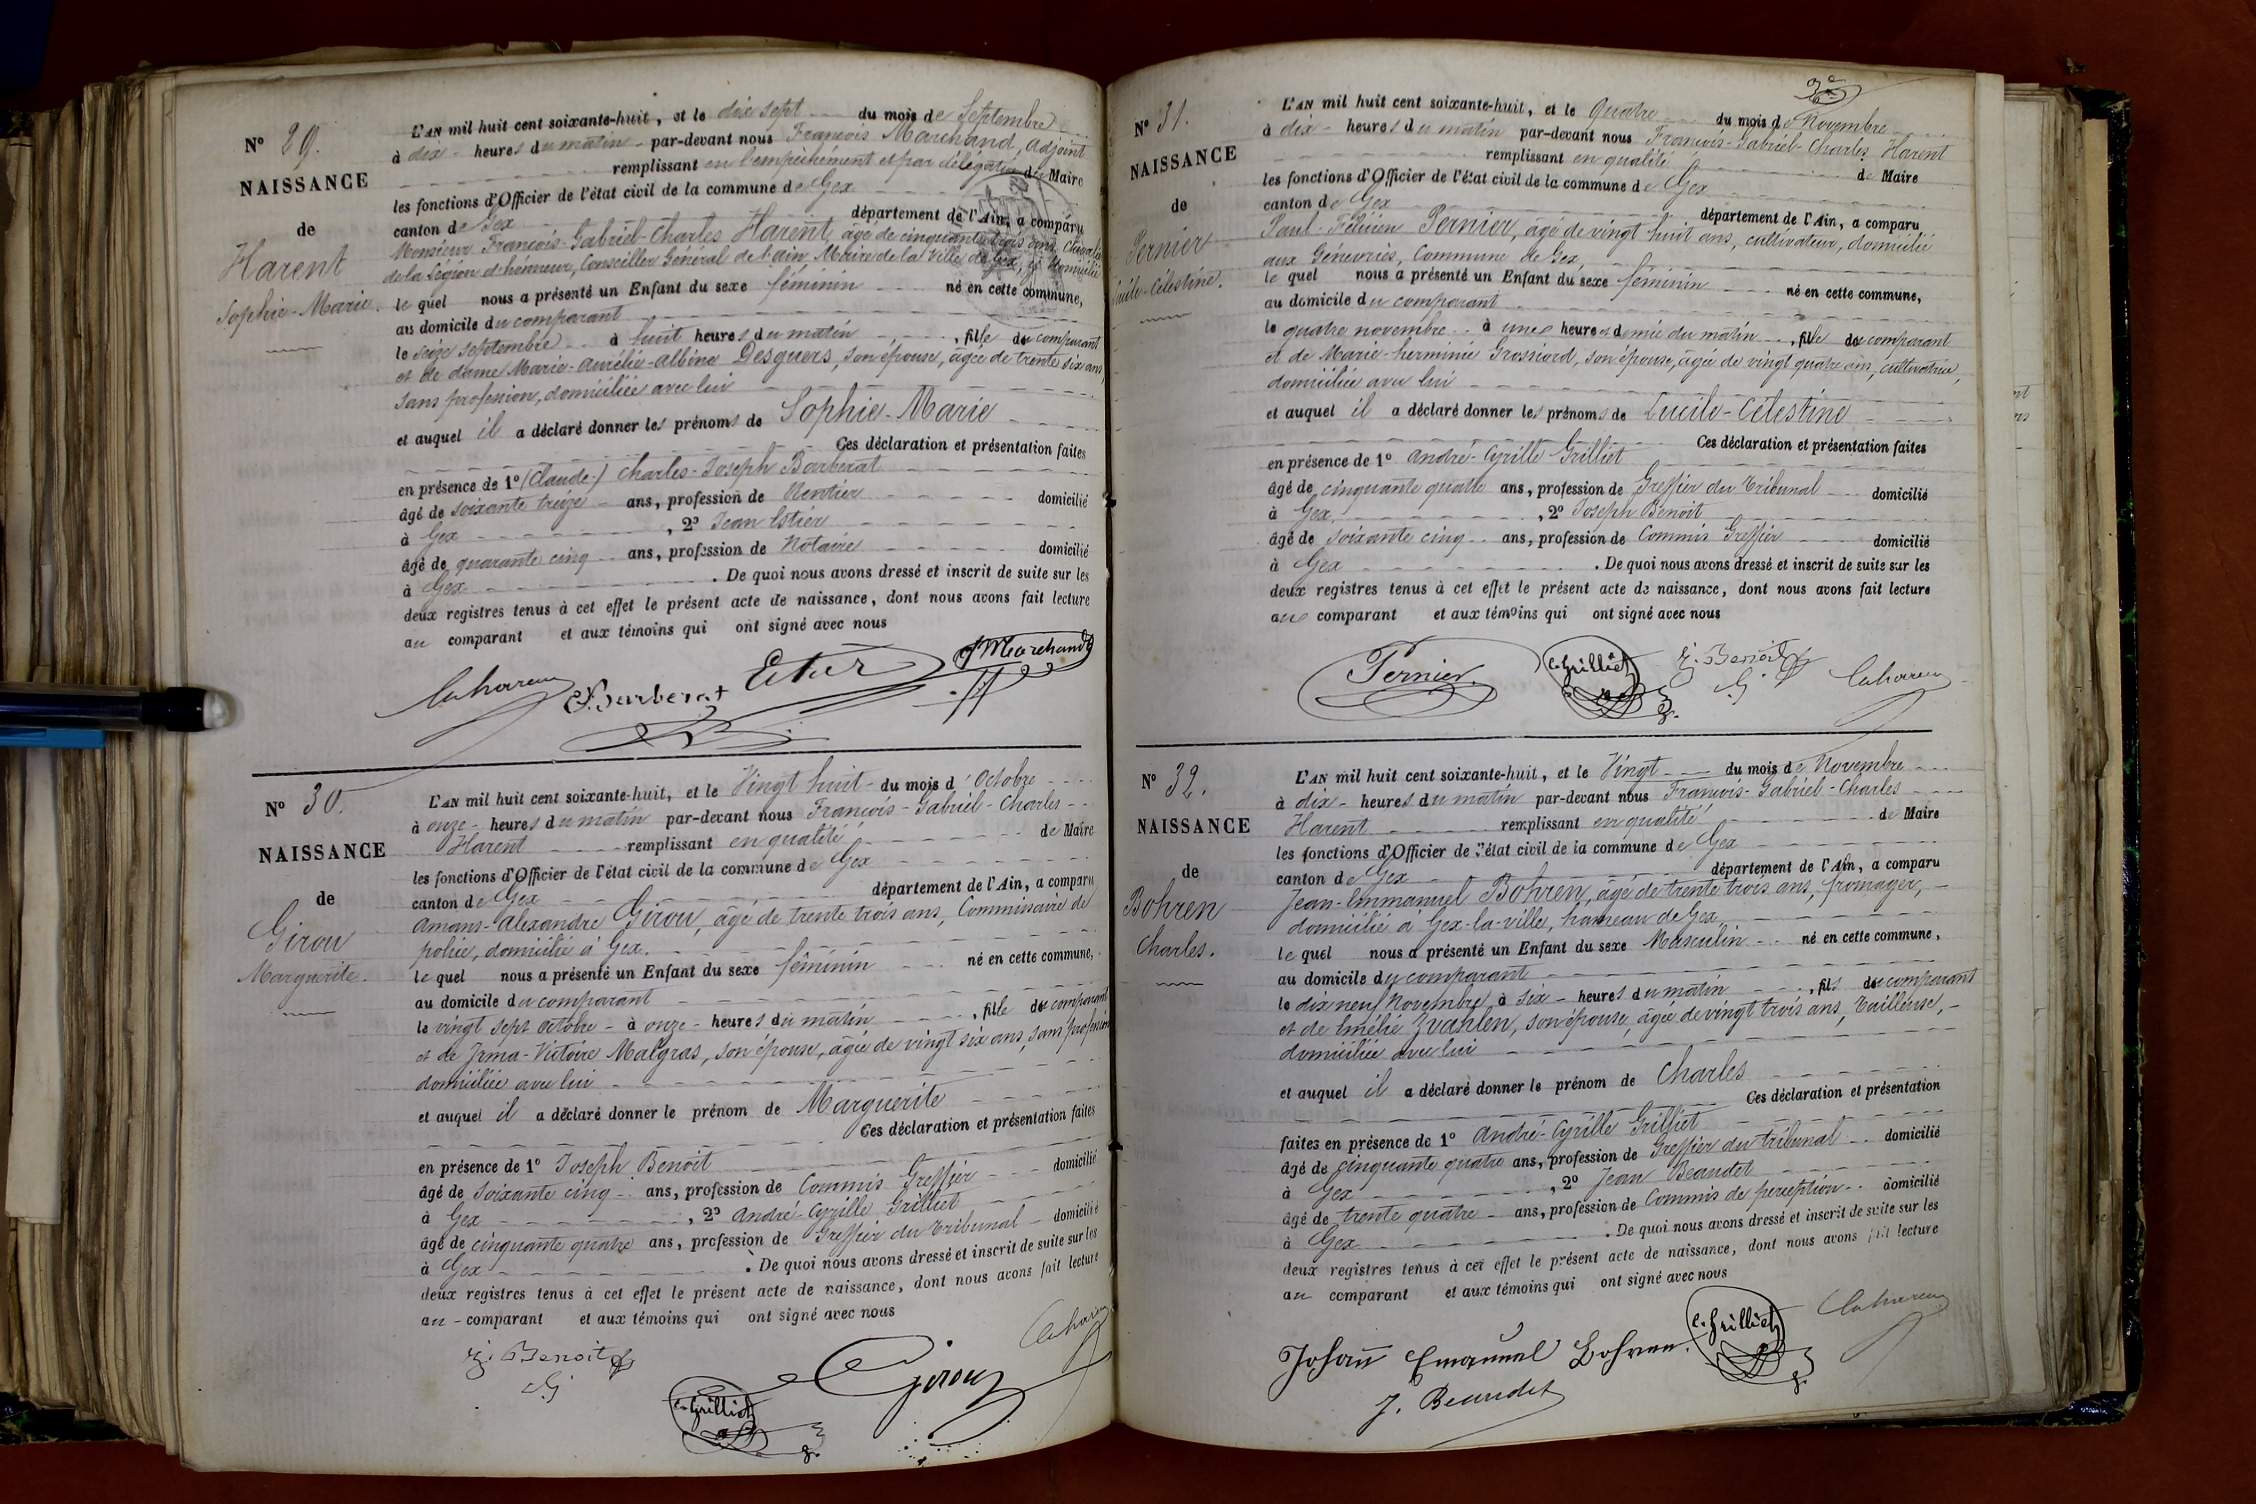 N° 29.
NAISSANCE
de
Harent
Sophie-Marie.
L'AN mil huit cent soixante-huit, et le dix sept du mois de Septembre
à dix heures du matin par-devant nous François Marchand, adjoint
remplissant en l'empêchement et par délégation de Maire
les fonctions d'Officier de l'état civil de la commune de Gex
canton de Gex département de l'Ain, a comparu
Monsieur François-Gabriel-Charles Harent âgé de cinquante trois ans, Chevalier
de la Légion d'honneur, Conseiller Général de l'ain, Maire de la Ville de Gex, y domicilié
le quel nous a présenté un Enfant du sexe féminin né en cette commune,
au domicile du comparant
le seize septembre à huit heures du matin, fille du comparant
et de dame Marie-aurélie-albine Desguers, son épouse, âgée de trente six ans,
sans profession, domiciliée avec lui
et auquel il a déclaré donner les prénoms de Sophie-Marie
Ces déclaration et présentation faites
en présence de 1° (Claude-) Charles-Joseph Barberat
âgé de soixante treize ans, profession de Rentier domicilié
à Gex, 2° Jean Estier
âgé de quarante cinq ans, profession de Notaire domicilié
à Gex. De quoi nous avons dressé et inscrit de suite sur les
deux registres tenus à cet effet le présent acte de naissance, dont nous avons fait lecture
au comparant et aux témoins qui ont signé avec nous
Barberat
Marchand
N° 30.
NAISSANCE
de
Girou
Marguerite.
L'AN mil huit cent soixante-huit, et le Vingt huit du mois d'Octobre
à onze heures du matin par-devant nous François-Gabriel-Charles
Harent remplissant en qualité de Maire
les fonctions d'Officier de l'état civil de la commune de Gex
canton de Gex département de l'Ain, a comparu
Amans-Alexandre Girou, âgé de trente trois ans, Commissaire de
police, domicilié à Gex.
le quel nous a présenté un Enfant du sexe féminin né en cette commune,
au domicile du comparant
le vingt sept octobre à onze heures du matin, fille du comparant
et de Irma-Victoire Malgras, son épouse, âgée de vingt six ans, sans profession
domiciliée avec lui
et auquel il a déclaré donner le prénom de Marguerite
Ces déclaration et présentation faites
en présence de 1° Joseph Benoit
âgé de soixante cinq ans, profession de Commis Greffier domicilié
à Gex, 2° André-Cyrille Grilliet
âgé de cinquante quatre ans, profession de Greffier du Tribunal domicilié
à Gex. De quoi nous avons dressé et inscrit de suite sur les
deux registres tenus à cet effet le présent acte de naissance, dont nous avons fait lecture
au comparant et aux témoins qui ont signé avec nous
Benoit
Girou
C. Grilliet
N° 31.
NAISSANCE
de
Pernier
Lucile-Célestine.
L'AN mil huit cent soixante-huit, et le Quatre du mois de Novembre
à dix heures du matin par-devant nous François-Gabriel-Charles Harent
remplissant en qualité de Maire
les fonctions d'Officier de l'état civil de la commune de Gex
canton de Gex département de l'Ain, a comparu
Paul-Félicien Pernier, âgé de vingt huit ans, cultivateur, domicilié
aux Génévriés, Commune de Gex,
le quel nous a présenté un Enfant du sexe féminin né en cette commune,
au domicile du comparant
le quatre novembre à une heure et demie du matin, fille du comparant
et de Marie-herminie Grossiord, son épouse, âgée de vingt quatre ans, cultivatrice,
domiciliée avec lui
et auquel il a déclaré donner les prénoms de Lucile-Célestine
Ces déclaration et présentation faites
en présence de 1° André-Cyrille Grilliet
âgé de cinquante quatre ans, profession de Greffier du Tribunal domicilié
à Gex, 2° Joseph Benoit
âgé de soixante cinq ans, profession de Commis Greffier domicilié
à Gex. De quoi nous avons dressé et inscrit de suite sur les
deux registres tenus à cet effet le présent acte de naissance, dont nous avons fait lecture
au comparant et aux témoins qui ont signé avec nous
Pernier.
C. Grilliet
Benoit
N° 32.
NAISSANCE
de
Bohren
Charles.
L'AN mil huit cent soixante-huit, et le Vingt du mois de Novembre
à dix heures du matin par-devant nous François-Gabriel-Charles
Harent remplissant en qualité de Maire
les fonctions d'Officier de l'état civil de la commune de Gex
canton de Gex département de l'Ain, a comparu
Jean-Emmanuel Bohren, âgé de trente trois ans, fromager,
domicilié à Gex-la-ville, hameau de Gex,
le quel nous a présenté un Enfant du sexe Masculin né en cette commune,
au domicile du comparant
le dix neuf Novembre, à six heures du matin, fils du comparant
et de Emélie Zvahlen, son épouse, âgée de vingt trois ans, Tailleuse,
domiciliée avec lui
et auquel il a déclaré donner le prénom de Charles
Ces déclaration et présentation
faites en présence de 1° André-Cyrille Grilliet
âgé de cinquante quatre ans, profession de Greffier du tribunal domicilié
à Gex, 2° Jean Beaudet
âgé de trente quatre ans, profession de Commis de perception domicilié
à Gex. De quoi nous avons dressé et inscrit de suite sur les
deux registres tenus à cet effet le présent acte de naissance, dont nous avons fait lecture
au comparant et aux témoins qui ont signé avec nous
Johann Emanuel Bohren.
C. Grilliet
J. Beaudet